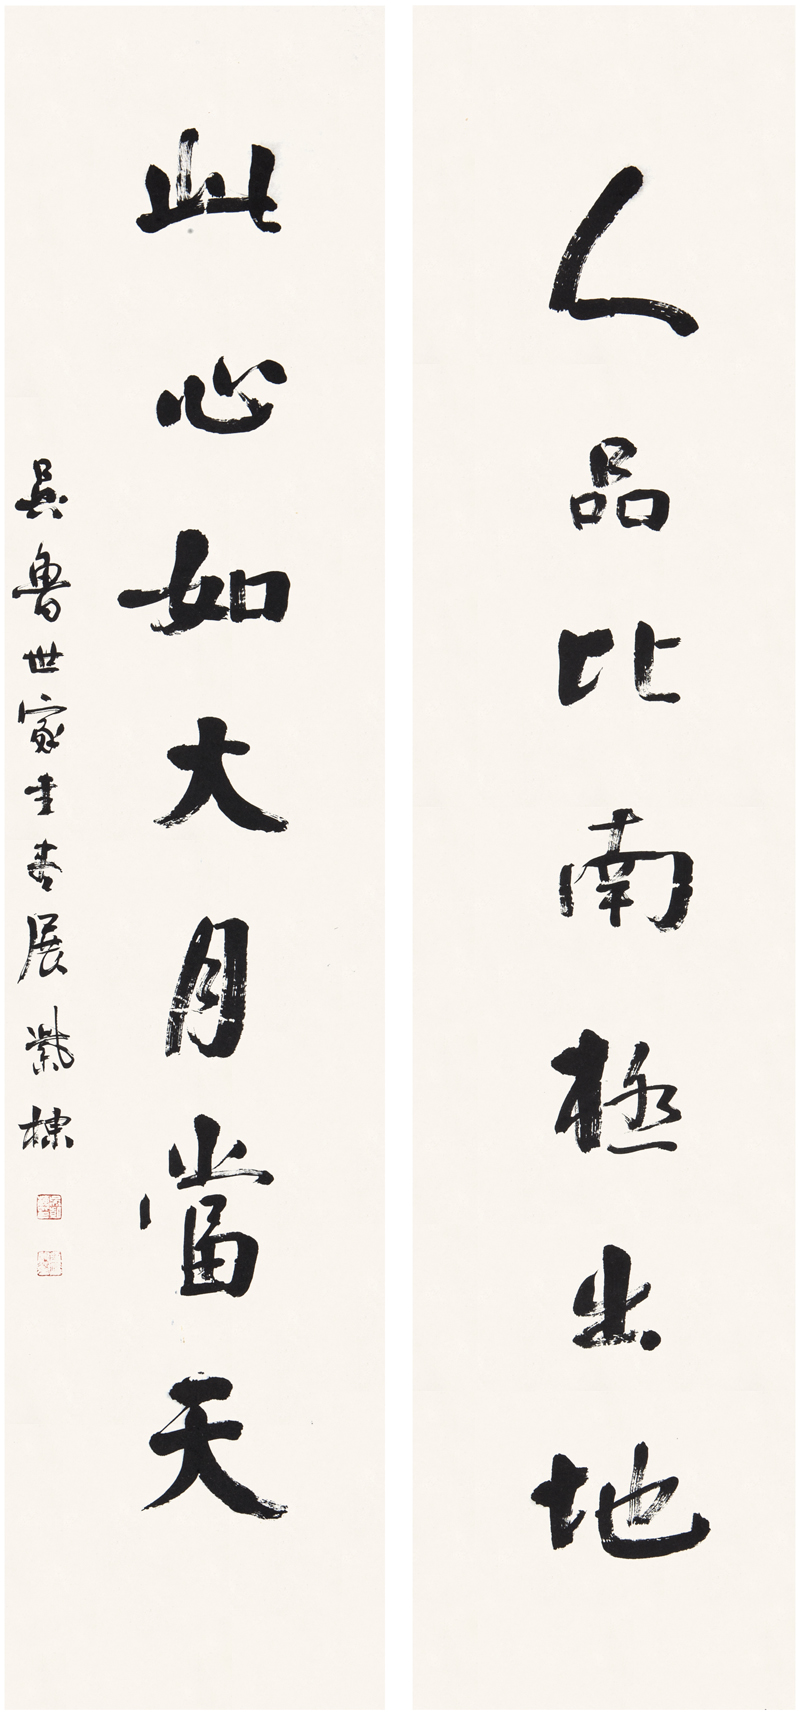 人品比南極出地
此心如大月當天
吳魯世家主書展紫棟